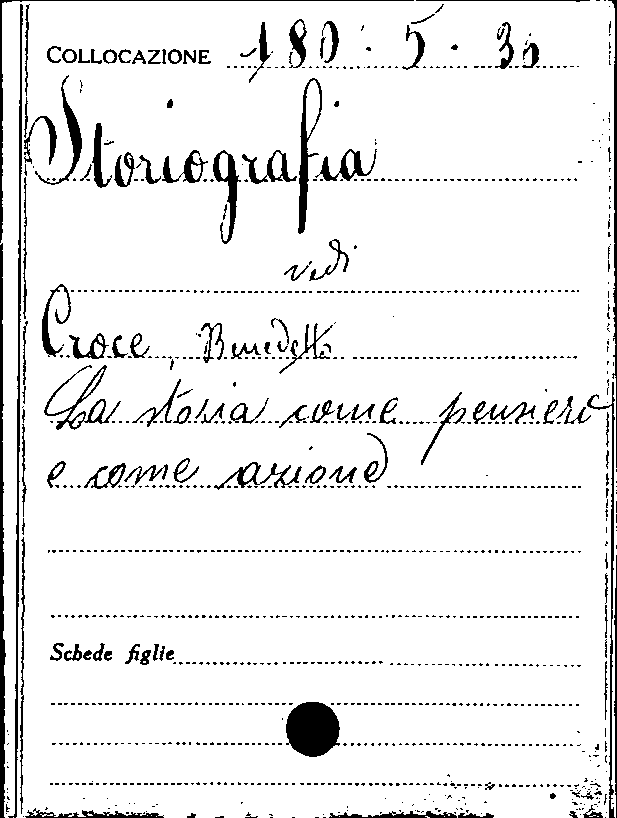 COLLOCAZIONE 180. 5. 30
Storiografia
vedi
Croce, Benedetto
La storia come pensiero
e come azione
Schede figlie